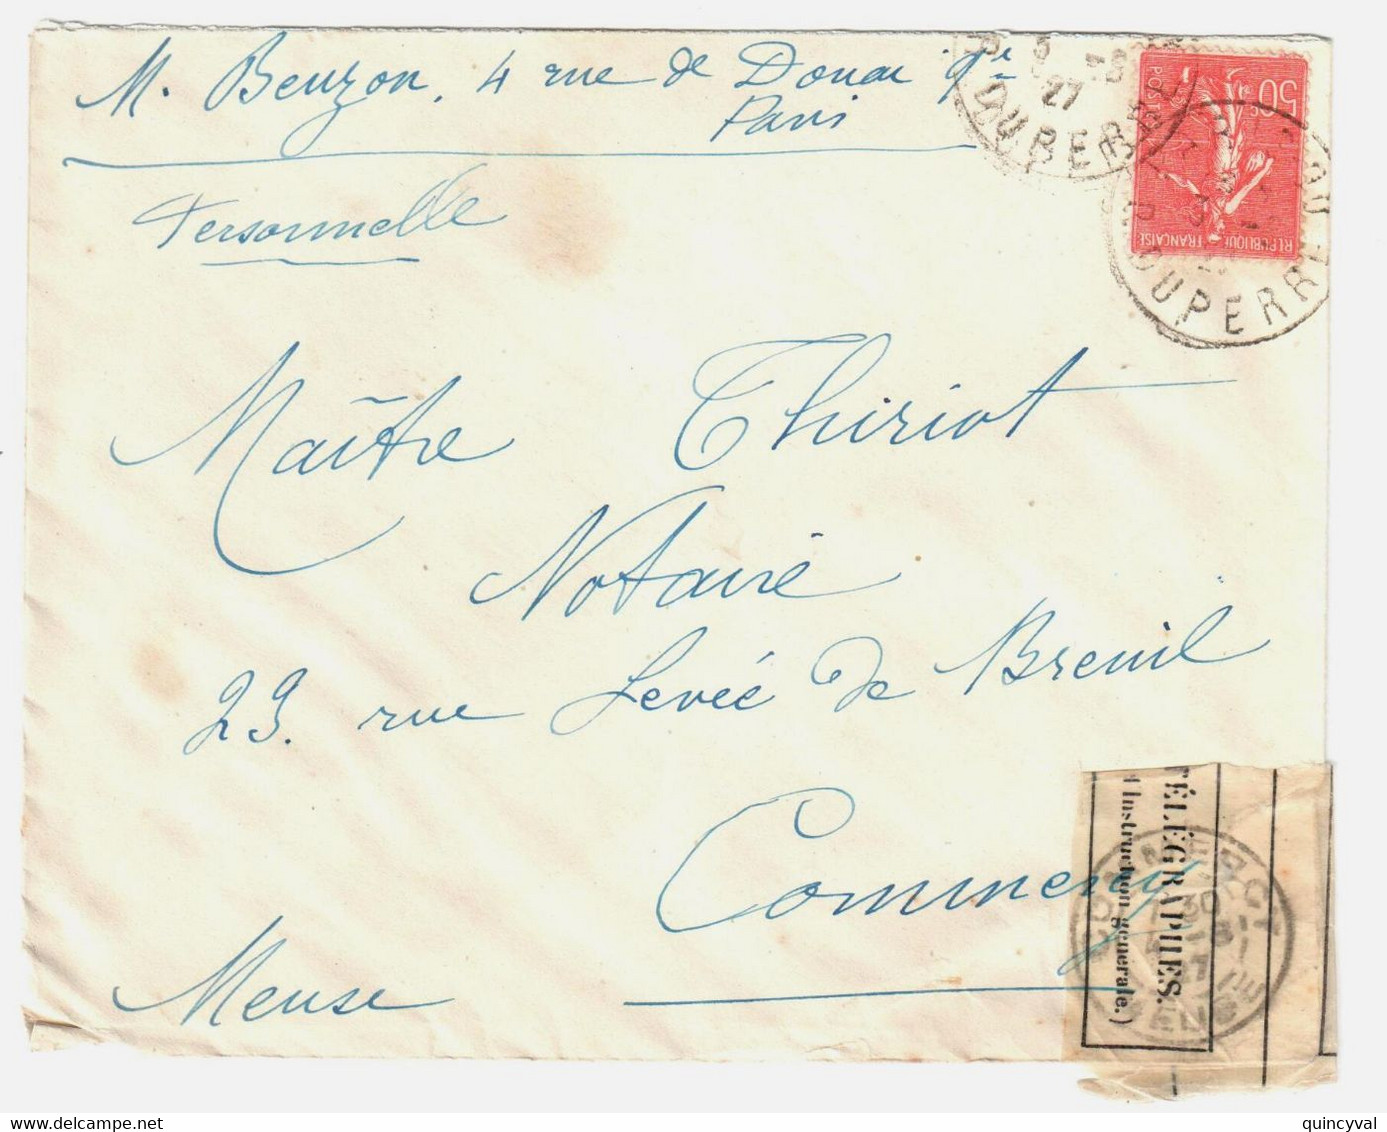 M. Beuzon, 4 rue de Douai 9e
Paris
Personnelle
Maître Thiriot
Notaire
23. rue Levée de Breuil
Commercy
Meuse
27
DUPERRÉ
50c
POSTES
REPUBLIQUE FRANÇAISE
DUPERRE
TÉLÉGRAPHES.
Instruction générale.)
COMMERCY
30
MEUSE
quincyval